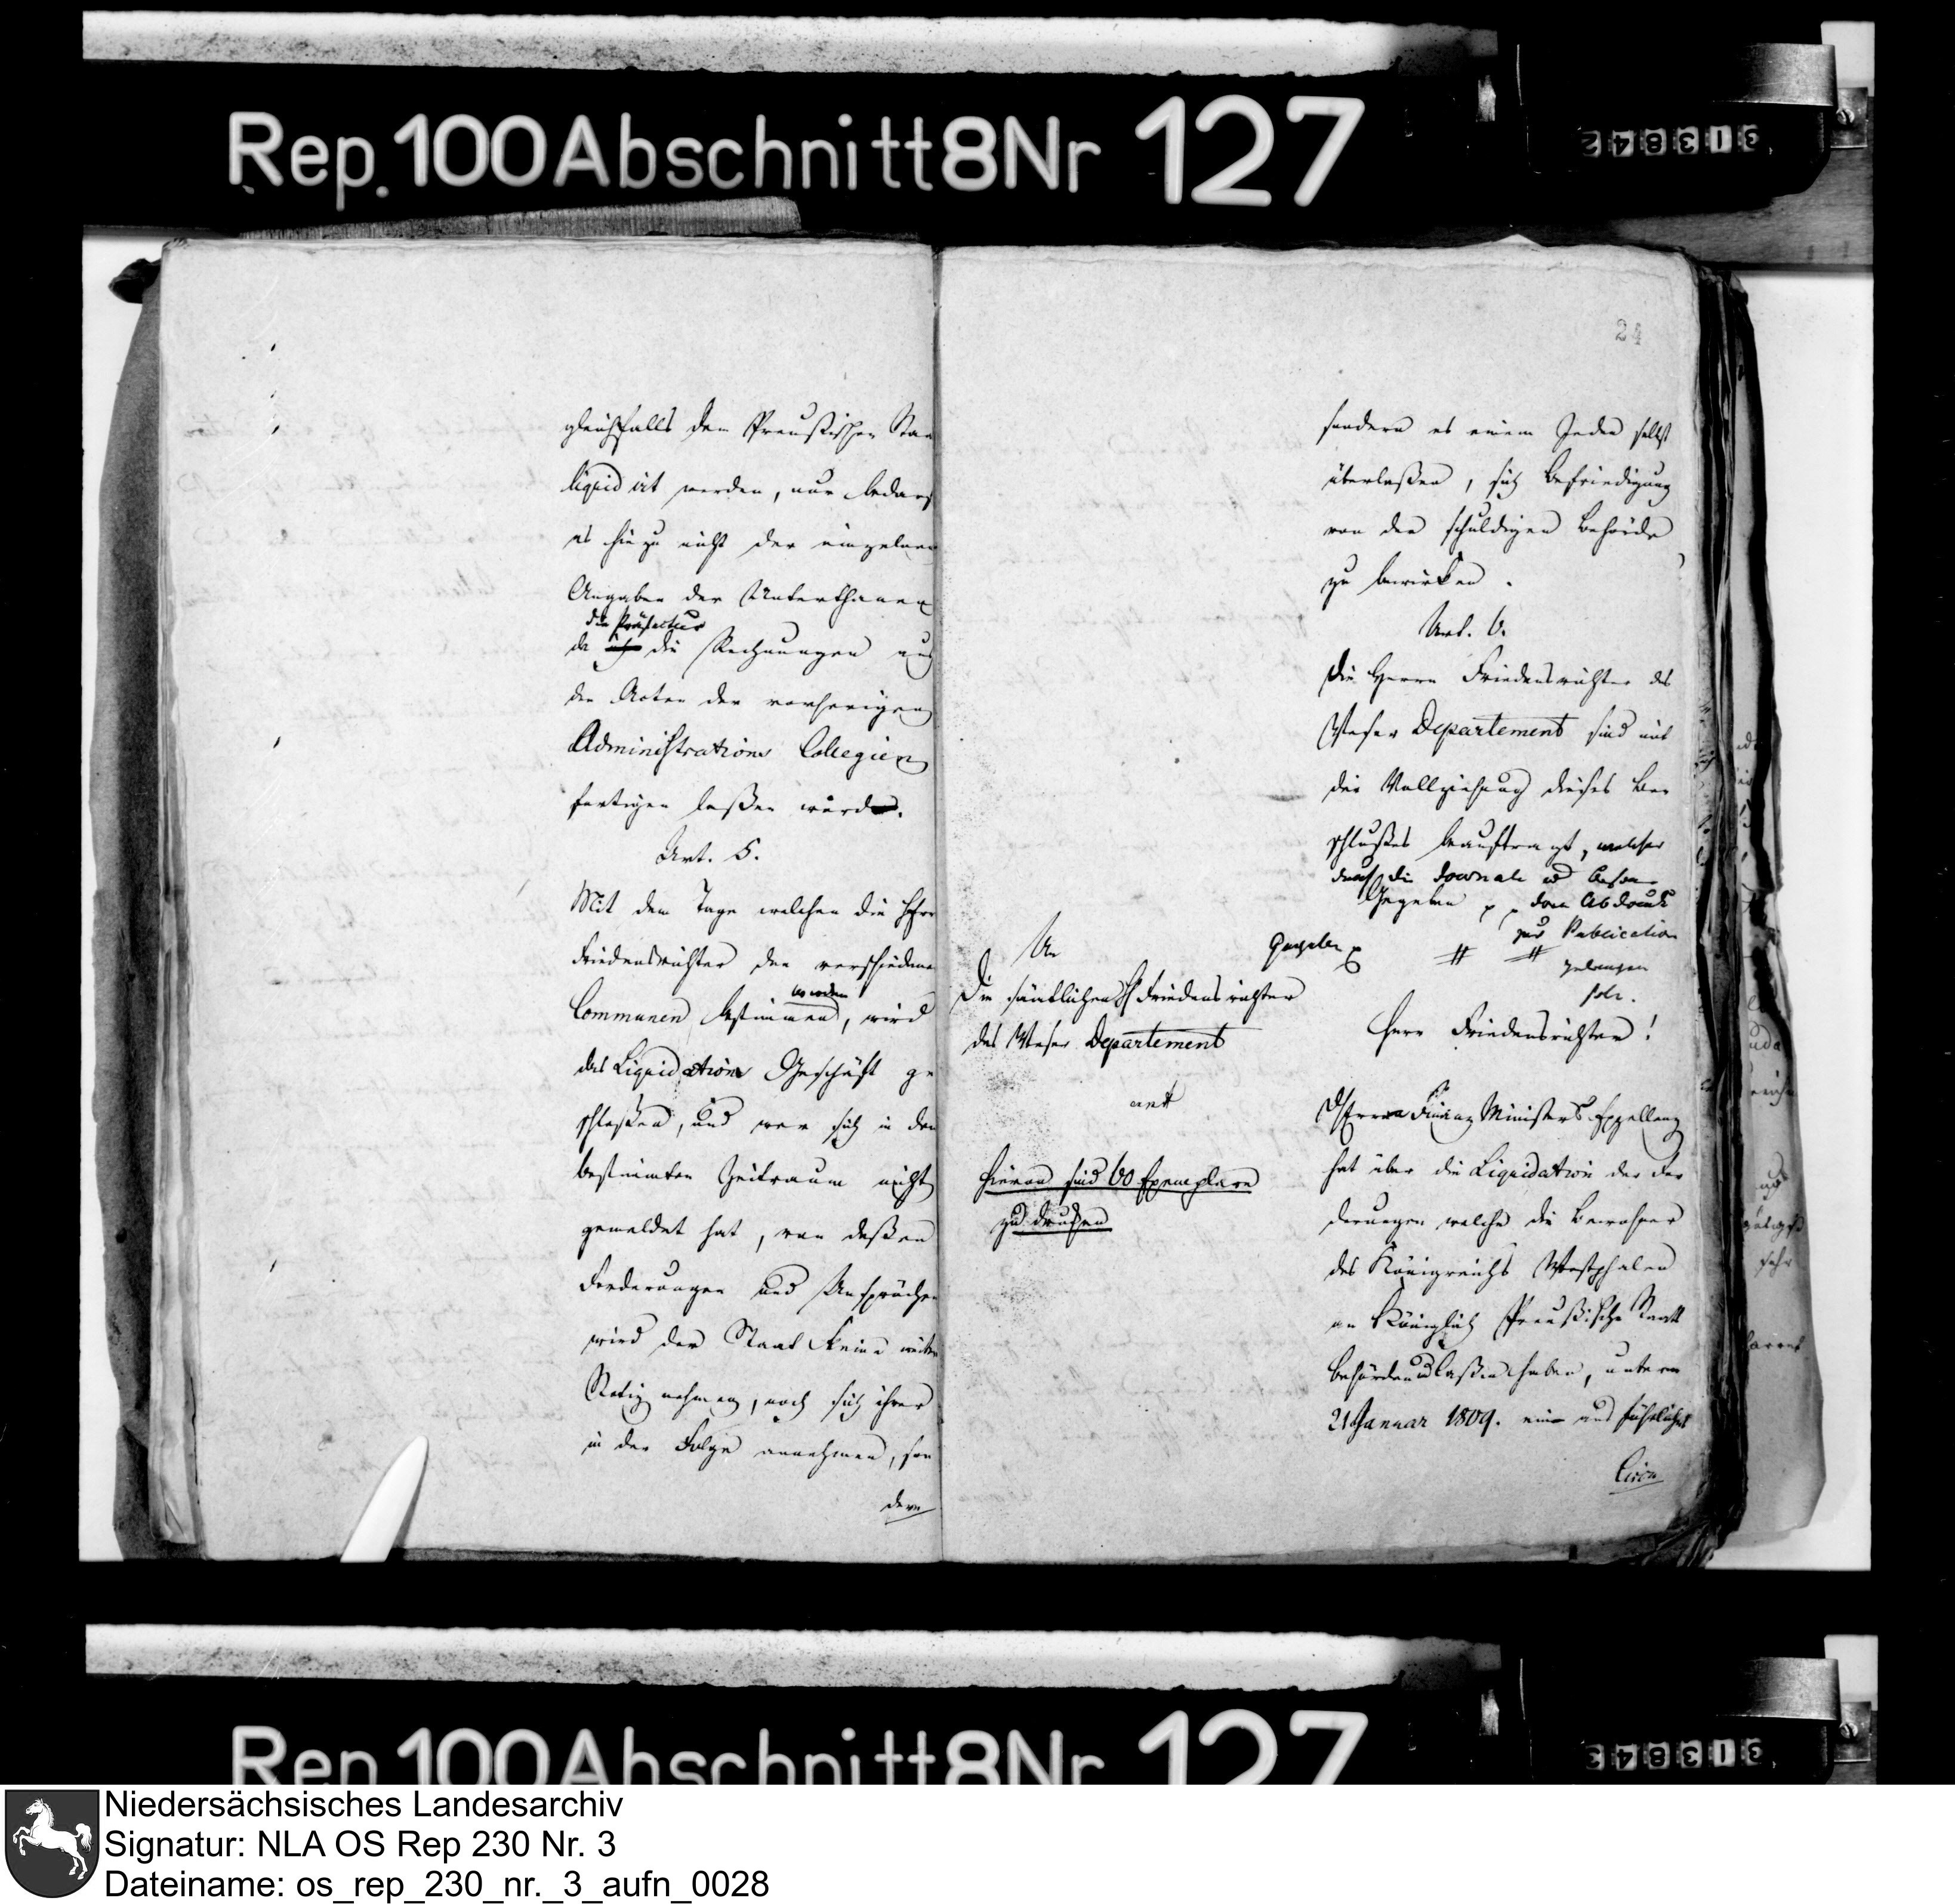 Rep. 100 Abschnitt 8 Nr 127
313842
gleichfalls dem Preußischen Staa
liquidirt werden, nur bedarf
es hiezu nicht der einzelnen
Angaben der Unterthanen
die Präfectur
da die Rechnungen aus
den Acten der vorherigen
Administrations Collegien
fertigen laßen wird.
Art. 5.
Mit dem Tage welchen die Herr
Friedensrichter den verschiedenen
werden
Communen bestimmen, wird
das Liquidations Geschäft ge
schloßen, und wer sich in dem
bestimmten Zeitraum nicht
gemeldet hat, von deßen
Forderungen und Ansprüchen
wird der Staat keine weitere
Notiz nehmen, noch sich ihrer
in der Folge annehmen, son
dern
24
sondern es einem Jeden selbst
überlaßen, sich Befriedigung
von der schuldigen Behörde
zu bewirken.
Art. 6.
Die Herrn Friedensrichter des
Weser Departement sind mit
der Vollziehung dieses Be
schlußes beauftragt, welcher
durch die Journale
Gegeben dem Abdruck
zur Publication
gelangen
soll.
Gegeben
An
Die sämtlichen H Friedensrichter
des Weser Departement
Hievon sind 60 Exemplare
zu drucken
Herr Friedensrichter!
Finanz Ministers Exzellenz
hat über die Liquidation der For
derungen welche die Bewohner
des Königreichs Westphalen
an Königlich Preußische Staats
behörden laßen haben, unterm
21 Januar 1809. ein ausführliches
Circu
Rep. 100 Abschnitt 8 Nr 127
313843
Niedersächsisches Landesarchiv
Signatur: NLA OS Rep 230 Nr. 3
Dateiname: os_rep_230_nr._3_aufn_0028